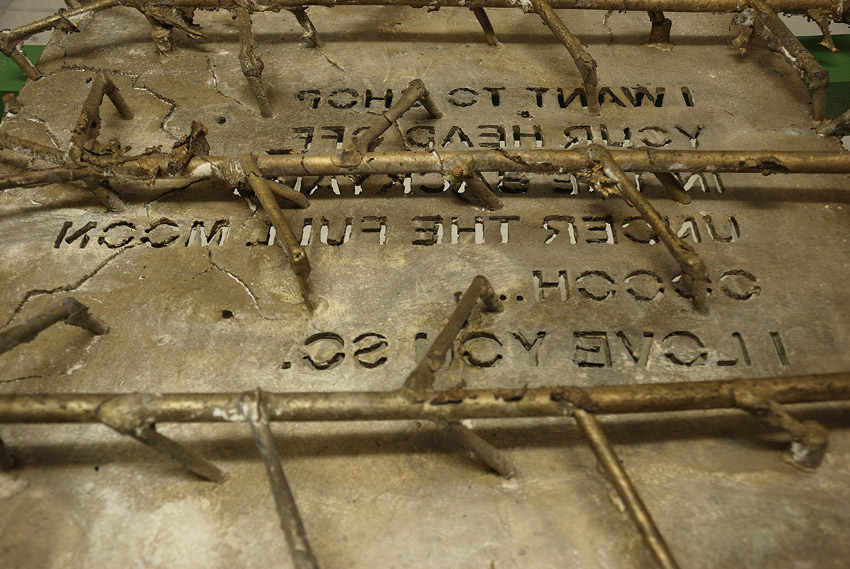 I WANT TO CHOP
YOUR HEAD OFF
IN THE BACKYARD
UNDER THE FULL MOON
OOOOH...
I LOVE YOU SO.